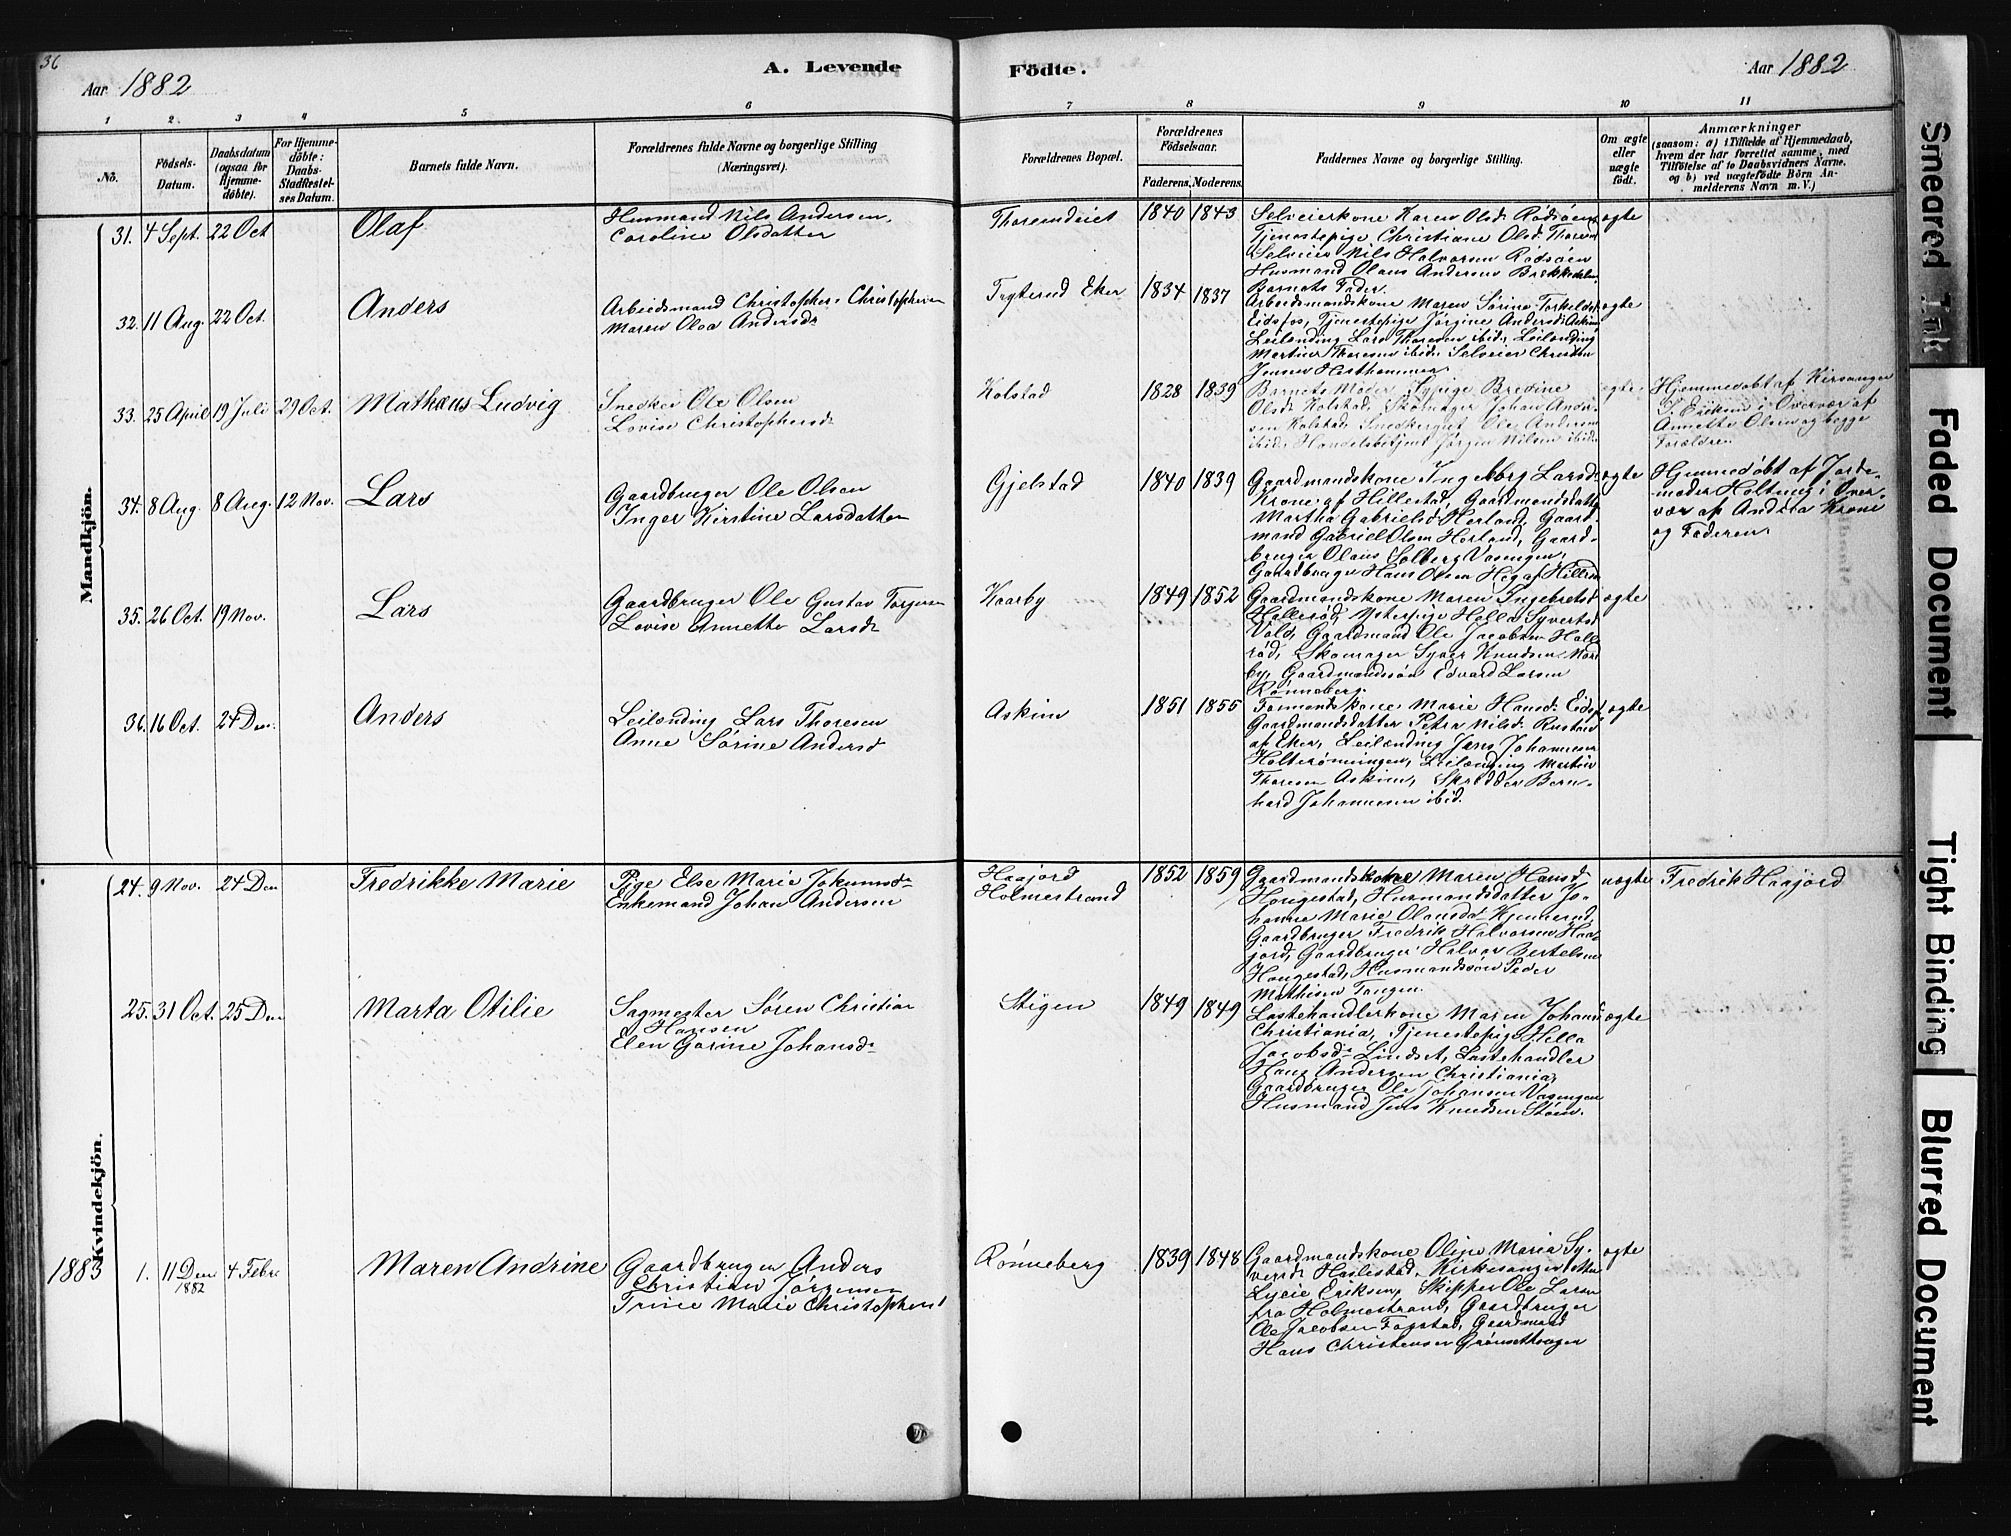 36
Aar 1882
A. Levende
Födte.
Aar 1882
1 2 3 4 5 6 7 8 9 10 11
No.
Födsels-Datum.
Daabsdatum (ogsaa for Hjemme-döbte).
For Hjemme-döbte: Daabs-Stadfæstel-ses Datum.
Barnets fulde Navn.
Forældrenes fulde Navne og borgerlige Stilling
(Næringsvei).
Forældrenes Bopæl.
Forældrenes Födselsaar.
Faderens. Moderens.
Faddernes Navne og borgerlige Stilling.
Om ægte eller uægte födt.
Anmærkninger
(saasom: a) i Tilfælde af Hjemmedaab,
hvem der har forrettet samme, med
Tilföielse af to Daabsvidners Navne.
og b) ved uægtefödte Börn An-
melderens Navn m. V.)
Mandkjön.
31. 4 Sept. 22 Oct Olaf
Husmand Nils Andersen,
Caroline Olsdatter
Thorsendeiet 1840 1843
Selveierkone Karen Olsd. Rødsøen
Tjenestepige Christiane Olsd.
Selveier Nils Halvorsen Rødsøen
Husmand Olaus Andersen
Barnets Fader.
ægte
32. 11 Aug. 22 Oct. Anders
Arbeidsmand Christopher Christophersen
Maren Olea Andersd.
Eker 1834 1837
Arbeidsmandskone Maren Sørine Torkildsd.
Eidsfos, Tjenestepige Jørgine Andersd. Askim
Leilending Lars Thoresen ibid., Leilending
Martin Thoresen ibid. Selveier Christen
Jensen
ægte
33. 25 April 19 Juli 29 Oct. Mathæus Ludvig
Snedker Ole Olsen
Lovise Christophersd.
Kolstad 1828 1839
Barnets Moder, Sypige
Olsd. Kolstad, Skomager Johan
sen Kolstad, Ole Andersen
ibid. Handelsbetjent Jørgen Nilsen ibid.
ægte
Hjemmedøbt af Kirsanger
Eriksen i Overvær af
Annette Olsen og begge
Forældre.
34. 8 Aug. 8 Aug. 12 Nov. Lars
Gaardbruger Ole Olsen
Inger Kirstine Larsdatter
Gjelstad 1840 1839
Gaardmandskone Ingeborg Larsd.
Krone af Hillestad, Gaardmandsdatter
Martha Gabrielsd. Herland, Gaard-
mand Gabriel Olsen Herland, Gaard-
bruger Olaus Solberg Vasengen,
Gaardbruger Hans Olsen Heg af
ægte
Hjemmedøbt af Jorde-
moder Holtung i Over-
vær af Andrea Krone
og Faderen.
35. 26 Oct. 19 Nov. Lars
Gaardbruger Ole Gustav Torgersen
Lovise Annette Larsd.
Kaarby 1849 1852
Gaardmandskone Maren Ingebretsd.
Hallerød, Hella Syvertsd.
Vold, Gaardmand Ole Jacobsen Halle-
rød, Skomager Syver Knudsen
by, Gaardmandssøn Edvard Larsen
Rønneberg.
ægte
36. 16 Oct. 24 Dec. Anders
Leilending Lars Thoresen
Anne Sørine Andersd.
Askim 1851 1855
Formandskone Marie Hansd. Eidsf.
Gaardmandsdatter Petra Nilsd. Rustad
af Eker, Leilending Jens Johannesen
Holterønningen, Leilending Martin
Thoresen Askim, Skrædder Bern-
hard Johannesen ibid.
ægte
Kvindekjön.
24. 9 Nov. 24 Dec Fredrikke Marie
Pige Else Marie
Enkemand Johan Andersen
Haajord
Holmestrand
1852 1859
Gaardmandskone Maren Hansd.
Hougestad, Husmandsdatter Jo-
hanne Maria Olausdat
Gaardbruger Fredrik Halvorsen Haa-
jord, Gaardbruger Halvor Bertelsen
Hougestad, Husmandssøn Peder
Mathisen Tangen.
uægte
Fredrik Haajord
25. 31 Oct. 25 Dec Marta Otilie
Sagmester Søren Christian
Hansen
Elen Gorine Johansd.
Stigen 1849 1849
Lastehandlerkone Maren Johans
Christiania, Tjenestepige Hella
Jacobsd. Lindset, Lastehandler
Hans Andersen Christiania,
Gaardbruger Ole Johansen Vasengen
Husmand Jens Knudsen Støen.
ægte
1883 1. 11 Dec 1882 4 Febr Maren Andrine
Gaardbruger Anders
Christian Jørgensen
Trine Marie Christophersd
Rønneberg 1839 1848
Gaardmandskone Oline Maria Sy-
versd. Haslestad, Kirkesangerdatter
Lycie Eriksen, Skipper Ole Larsen
fra Holmestrand, Gaardbruger
Ole Jacobsen Fogstad, Gaardmand
Hans Christensen
ægte
Smeared Ink
Faded Document
Tight Binding
Blurred Document